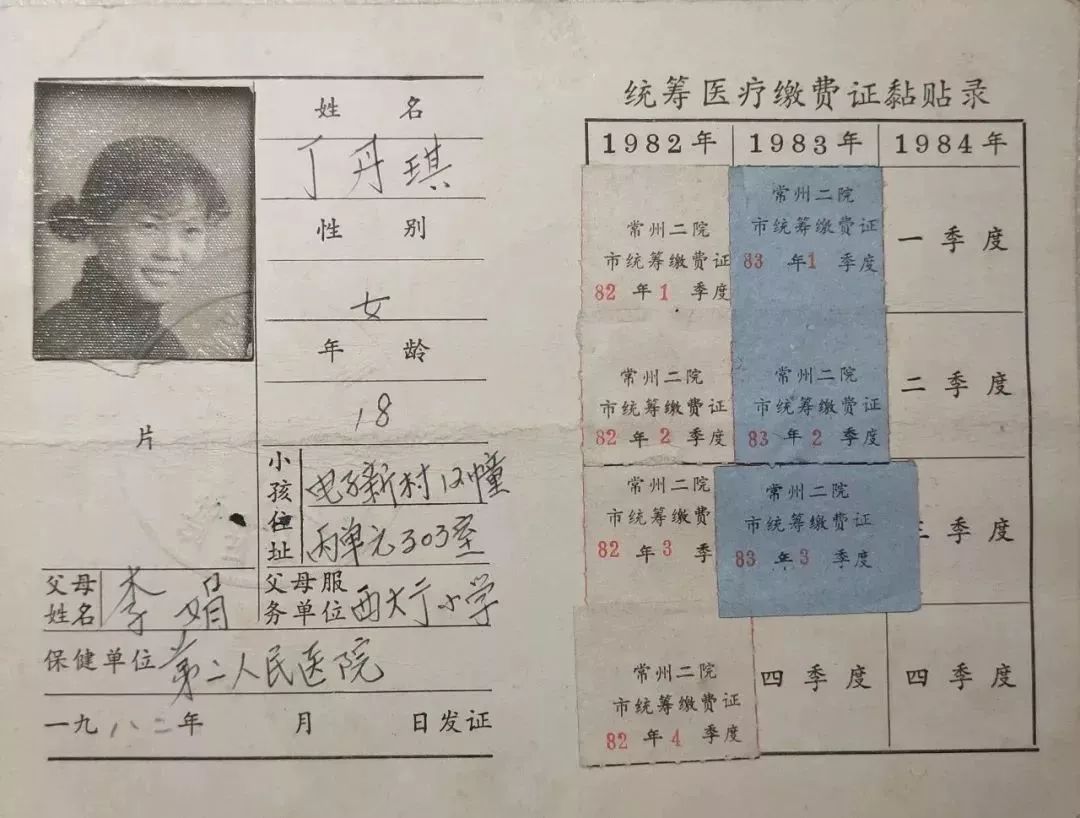 姓 名
丁丹琪
性 别
女
年 龄
18
片
小孩住址
电子新村12幢
丙单元303室
父母姓名
李娟
父母服务单位
西大厅小学
保健单位
第二人民医院
一九八二年 月 日发证
统筹医疗缴费证黏贴录
1982年 1983年 1984年
常州二院
市统筹缴费证
82年1季度
常州二院
市统筹缴费证
83年1季度
一季度
常州二院
市统筹缴费证
82年2季度
常州二院
市统筹缴费证
83年2季度
二季度
常州二院
市统筹缴费
82年3季
常州二院
市统筹缴费证
83年3季度
季度
常州二院
市统筹缴费证
82年4季度
四季度
四季度